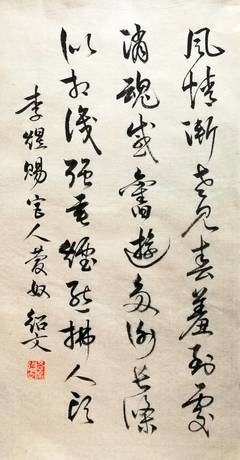 風情漸老見春羞到處
消魂感舊遊多謝長條
似相識強垂煙態拂人頭
李煜賜宮人慶奴 紹文